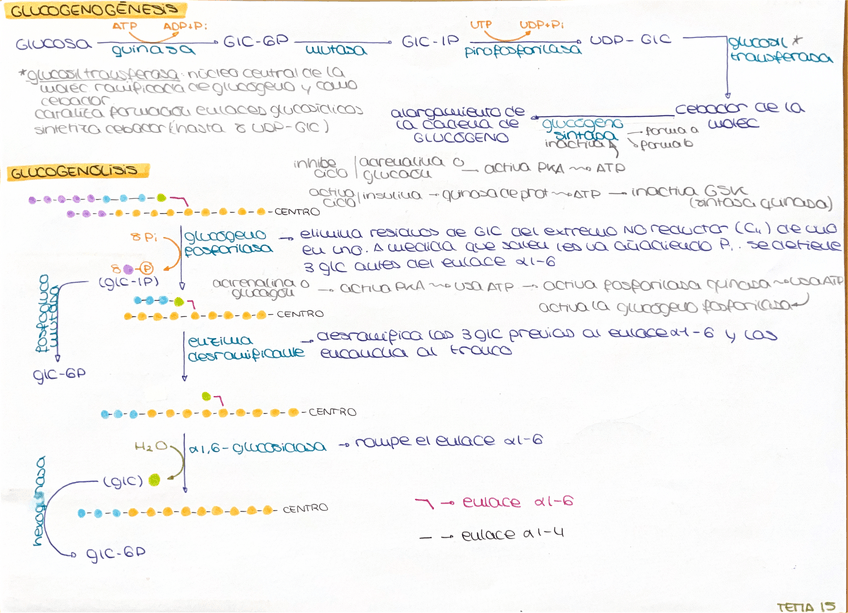 GLUCOGENOGÉNESIS
ATP ADP+Pi UTP UDP+Pi
GLUCOSA GlC-6P GlC-1P UDP-GlC
quinasa mutasa pirofosforilasa glucosil*
transferasa
*glucosil transferasa núcleo central de la
molec ramificada de glucógeno y como
cebador
cataliza formación enlaces glucosídicos
sintetiza cebador (hasta 8 UDP-GlC)
alargamiento de
la cadena de
GLUCÓGENO
glucógeno
sintasa
inactiva
forma a
forma b
cebador de la
molec
inhibe
ciclo
adrenalina o
glucacú → activa PKA ~ ATP
activa
ciclo
insulina → quinasa de prot ~ ATP → inactiva GSK
(sintasa quinasa)
GLUCOGENÓLISIS
CENTRO
8 Pi
glucógeno
fosforilasa
→ elimina residuos de GlC del extremo NO reductor (C4) de uno
en uno. A medida que salen les va añadiendo Pi. se detiene
3 glc antes del enlace α1-6
8 P
(glc-1P)
fosfogluco
mutasa
glC-6P
adrenalina o
glucagón → activa PKA ~ usa ATP → activa fosforilasa quinasa ~ usa ATP
activa la glucógeno fosforilasa
CENTRO
enzima
desramificante
→ desramifica las 3 glC previas al enlace α1-6 y las
engancha al tronco
CENTRO
H2O
α1,6-glucosidasa → rompe el enlace α1-6
(glc)
hexoquinasa
CENTRO
glC-6P
→ enlace α1-6
→ enlace α1-4
TEMA 15